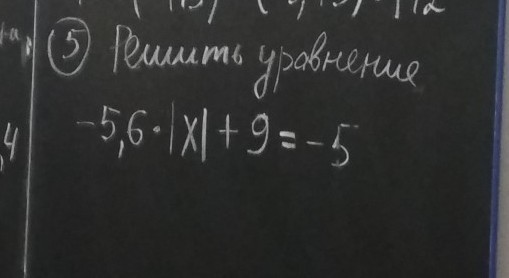 5 Решить уравнение
-5,6·|x|+9=-5